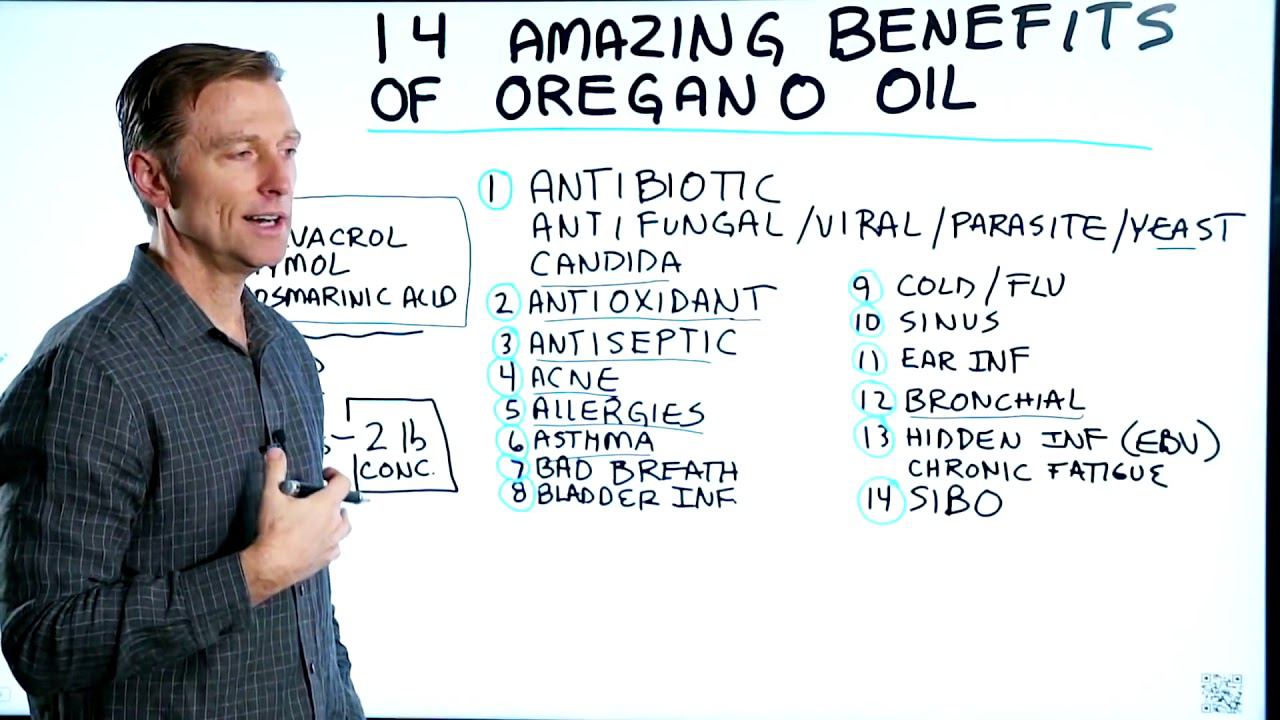 14 AMAZING BENEFITS
OF OREGANO OIL
VACROL
YMOL
OSMARINIC ACID
2 lb
CONC.
1 ANTIBIOTIC
ANTIFUNGAL/VIRAL/PARASITE/YEAST
CANDIDA
2 ANTIOXIDANT
3 ANTISEPTIC
4 ACNE
5 ALLERGIES
6 ASTHMA
7 BAD BREATH
8 BLADDER INF
9 COLD/FLU
10 SINUS
11 EAR INF
12 BRONCHIAL
13 HIDDEN INF (EBV)
CHRONIC FATIGUE
14 SIBO